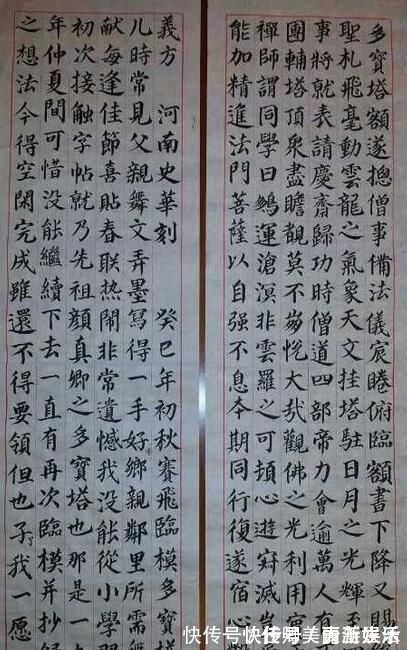 多寶塔額遂摠僧事備法儀宸睠俯臨額書下降又賜
聖札飛毫動雲龍之氣象天文挂塔駐日月之光輝至
事將就表請慶齋歸功時僧道四部帝力會逾萬人有
團輔塔頂衆盡瞻觀莫不崩悅大哉觀佛之光利用
禪師謂同學曰鵬運滄溟非雲羅之可頓心遊寂滅
能加精進法門菩薩以自强不息本期同行復遂宿心
義方 河南史華刻 癸巳年初秋賽飛臨模多寶塔
儿時常見父親舞文弄墨寫得一手好鄉親鄰里所需
献每逢佳節喜貼春联热鬧非常遺憾我没能從小學
初次接触字帖就乃先祖顏真卿之多寶塔也那是一
年仲夏間可惜没能繼續下去一直有再次臨模并抄
之想法今得空閑完成雖還不得要領但也了我一愿
快传号快传号